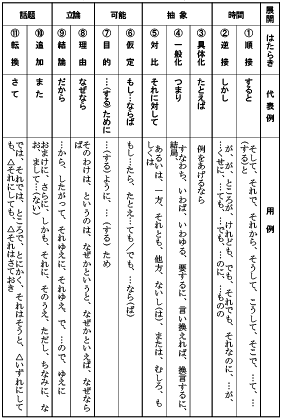 展開
はたらき
代表例
用例
時間
①順接
すると
そして、それで、それから、そうして、こうして、そこで、…て、…
(する)と
②逆接
しかし
が、が、ところが、けれども、でも、それでも、それなのに、…が、
…くせに、…ても、…でも、…のに、…ものの
抽象
③具体化
たとえば
例をあげるなら
④一般化
つまり
すなわち、いわば、いわゆる、要するに、言い換えれば、換言するに、
結局、
⑤対比
それに対して
あるいは、一方、それとも、他方、ないし(は)、または、むしろ、も
しくは
可能
⑥仮定
もし…ならば
もし…たら、たとえ…ても/でも、…なら(ば)
⑦目的
…(する)ために
…(する)ように、…(する)ため
立論
⑧理由
なぜなら
そのわけは、というのは、なぜかというと、なぜかといえば、なぜなら
ば
⑨結論
だから
…から、したがって、それゆえに、それゆえ、で、…ので、ゆえに
話題
⑩追加
また
おまけに、さらに、しかも、それに、そのうえ、ただし、ちなみに、な
お、まして…(ない)
⑪転換
さて
では、それでは、ところで、とにかく、それはそうと、△いずれにして
も、△それにしても、△それはさておき